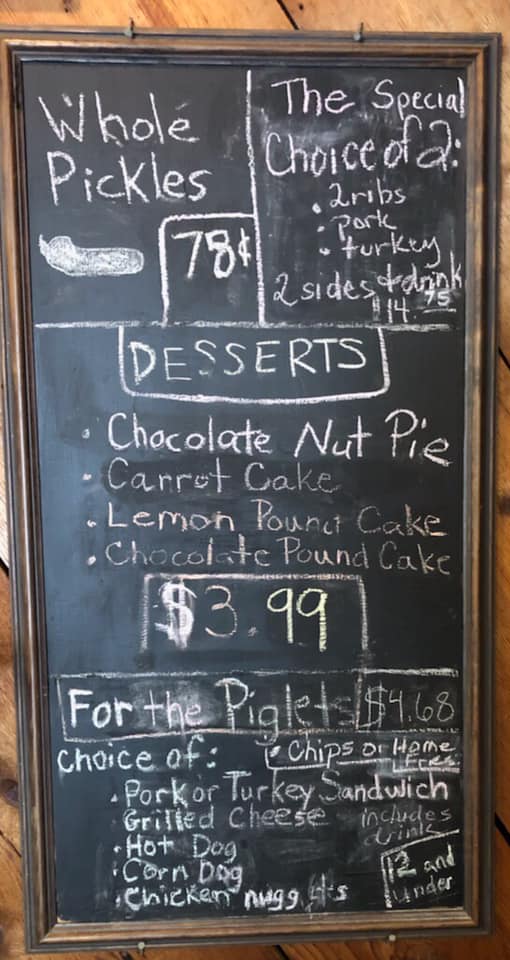 Whole
Pickles
78¢
The Special
Choice of 2:
• 2 ribs
• Pork
• turkey
2 sides & drink
$14.75
DESSERTS
• Chocolate Nut Pie
• Carrot Cake
• Lemon Pound Cake
• Chocolate Pound Cake
$3.99
For the Piglets $4.68
Choice of:
• Chips or Home
Fries
• Pork or Turkey Sandwich
• Grilled Cheese
• Hot Dog
• Corn Dog
• Chicken nuggets
includes
drink
12 and
under